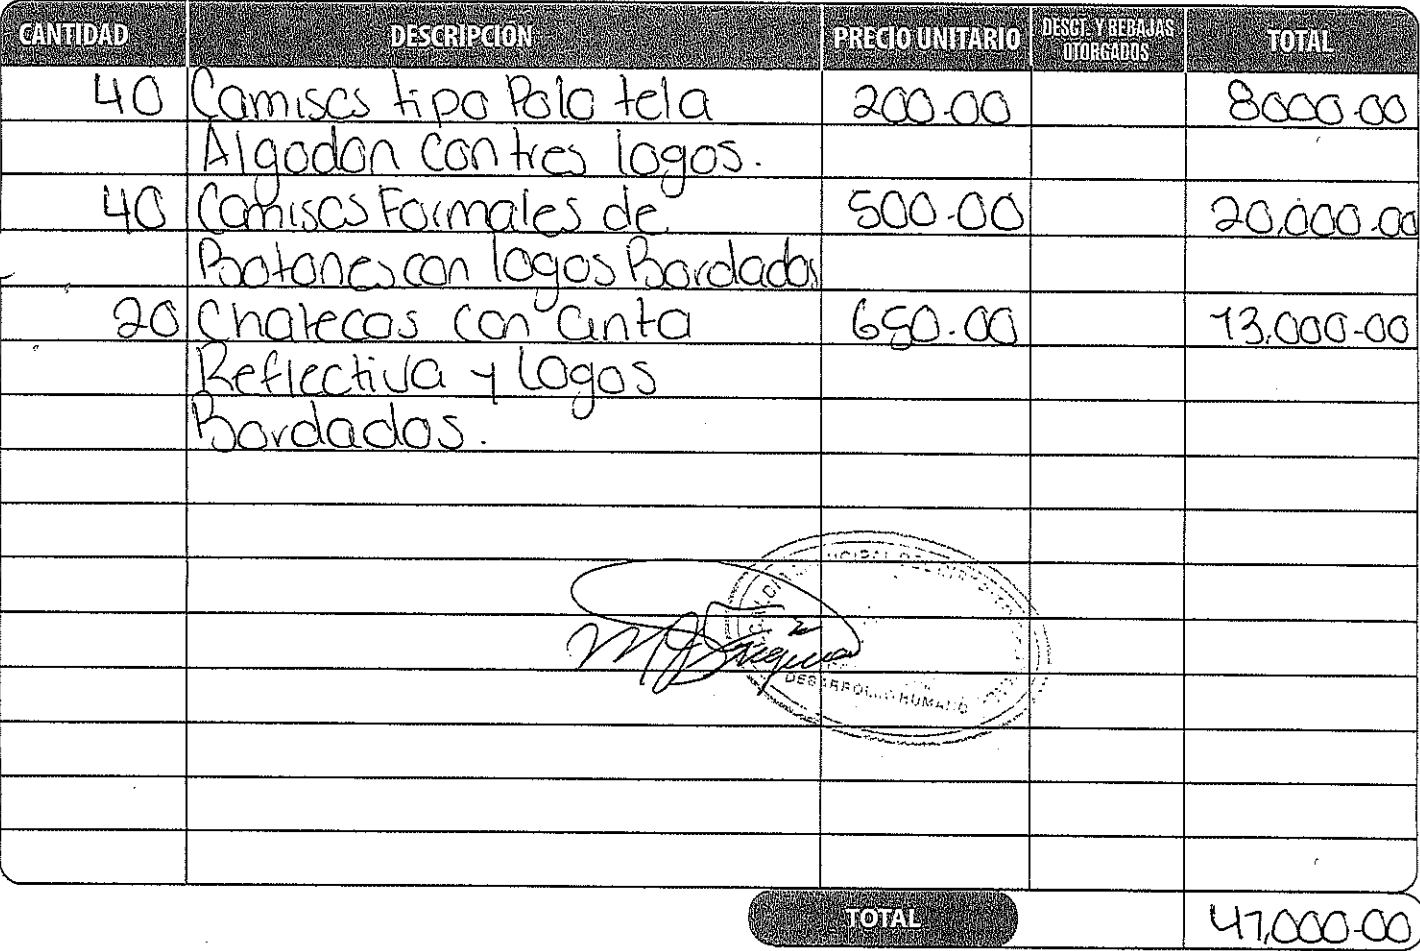 CANTIDAD DESCRIPCIÓN PRECIO UNITARIO DESCT. Y REBAJAS OTORGADOS TOTAL
40 Camisas tipo Polo tela 200.00 8000.00
Algodon con tres logos.
40 Camisas Formales de 500.00 20,000.00
Botones con logos Bordados
20 Chalecos con cinta 650.00 13,000.00
Reflectiva y Logos
Bordados.
DESARROLLO HUMANO
TOTAL 41,000.00